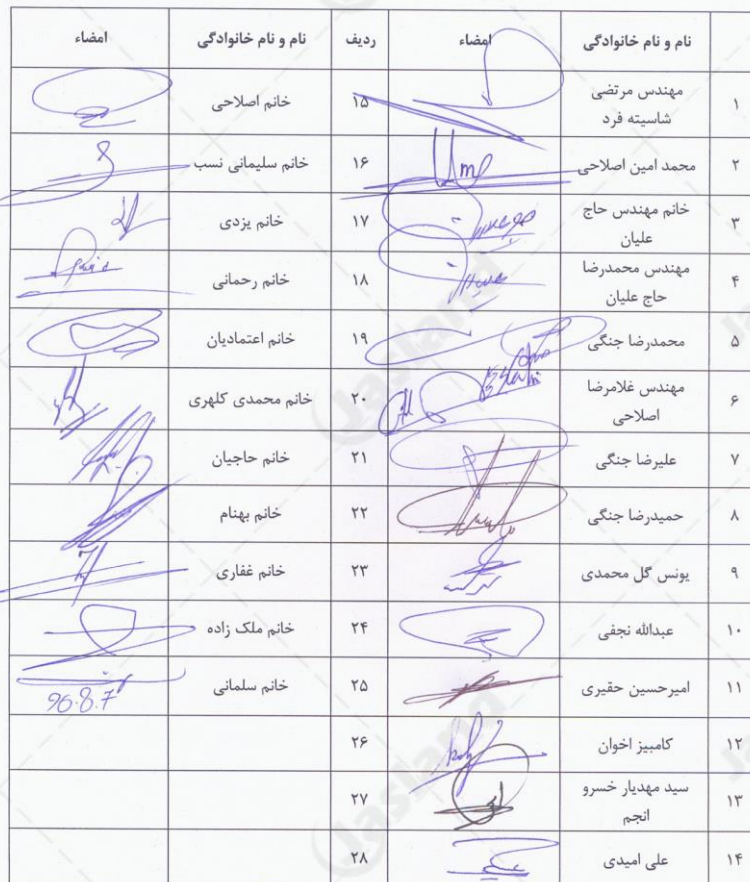 نام و نام خانوادگی امضاء ردیف نام و نام خانوادگی امضاء
۱ مهندس مرتضی ۱۵ خانم اصلاحی
شاسیته فرد
۲ محمد امین اصلاحی ۱۶ خانم سلیمانی نسب
۳ خانم مهندس حاج ۱۷ خانم یزدی
علیان
۴ مهندس محمدرضا ۱۸ خانم رحمانی
حاج علیان
۵ محمدرضا جنگی ۱۹ خانم اعتمادیان
۶ مهندس غلامرضا ۲۰ خانم محمدی کلهری
اصلاحی
۷ علیرضا جنگی ۲۱ خانم حاجیان
۸ حمیدرضا جنگی ۲۲ خانم بهنام
۹ یونس گل محمدی ۲۳ خانم غفاری
۱۰ عبدالله نجفی ۲۴ خانم ملک زاده
۱۱ امیرحسین حقیری ۲۵ خانم سلمانی
96.8.7
۱۲ کامبیز اخوان ۲۶
۱۳ سید مهدیار خسرو ۲۷
انجم
۱۴ علی امیدی ۲۸
Jasland